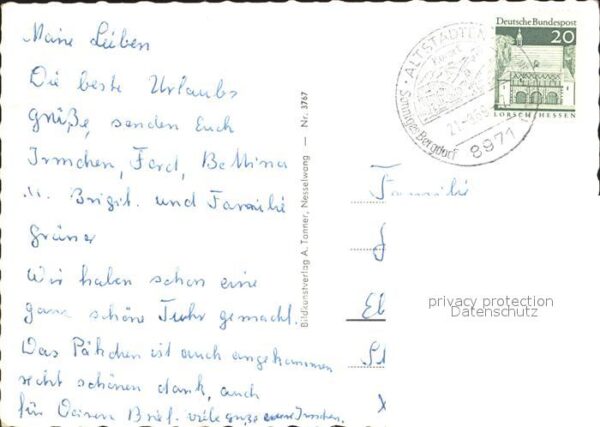 Meine Lieben
Die beste Urlaubs
grüße, senden Euch
Irmchen, Ferd, Bettina
u. Brigit. und Familie
Grüner
Wir haben schon eine
ganz schöne Tuhr gemacht.
Das Päkchen ist auch angekommen
recht schönen dank, auch
für Deinen Brief. viele grüße Irmchen.
Bildkunstverlag A. Tanner, Nesselwang — Nr. 3767
Deutsche Bundespost
20
LORSCH/HESSEN
ALTSTÄDTEN
Sonniges Bergdorf
8971
Familie
privacy protection
Datenschutz